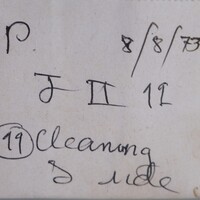 P. 8/8/73
J II 11
(19) Cleaning
& side